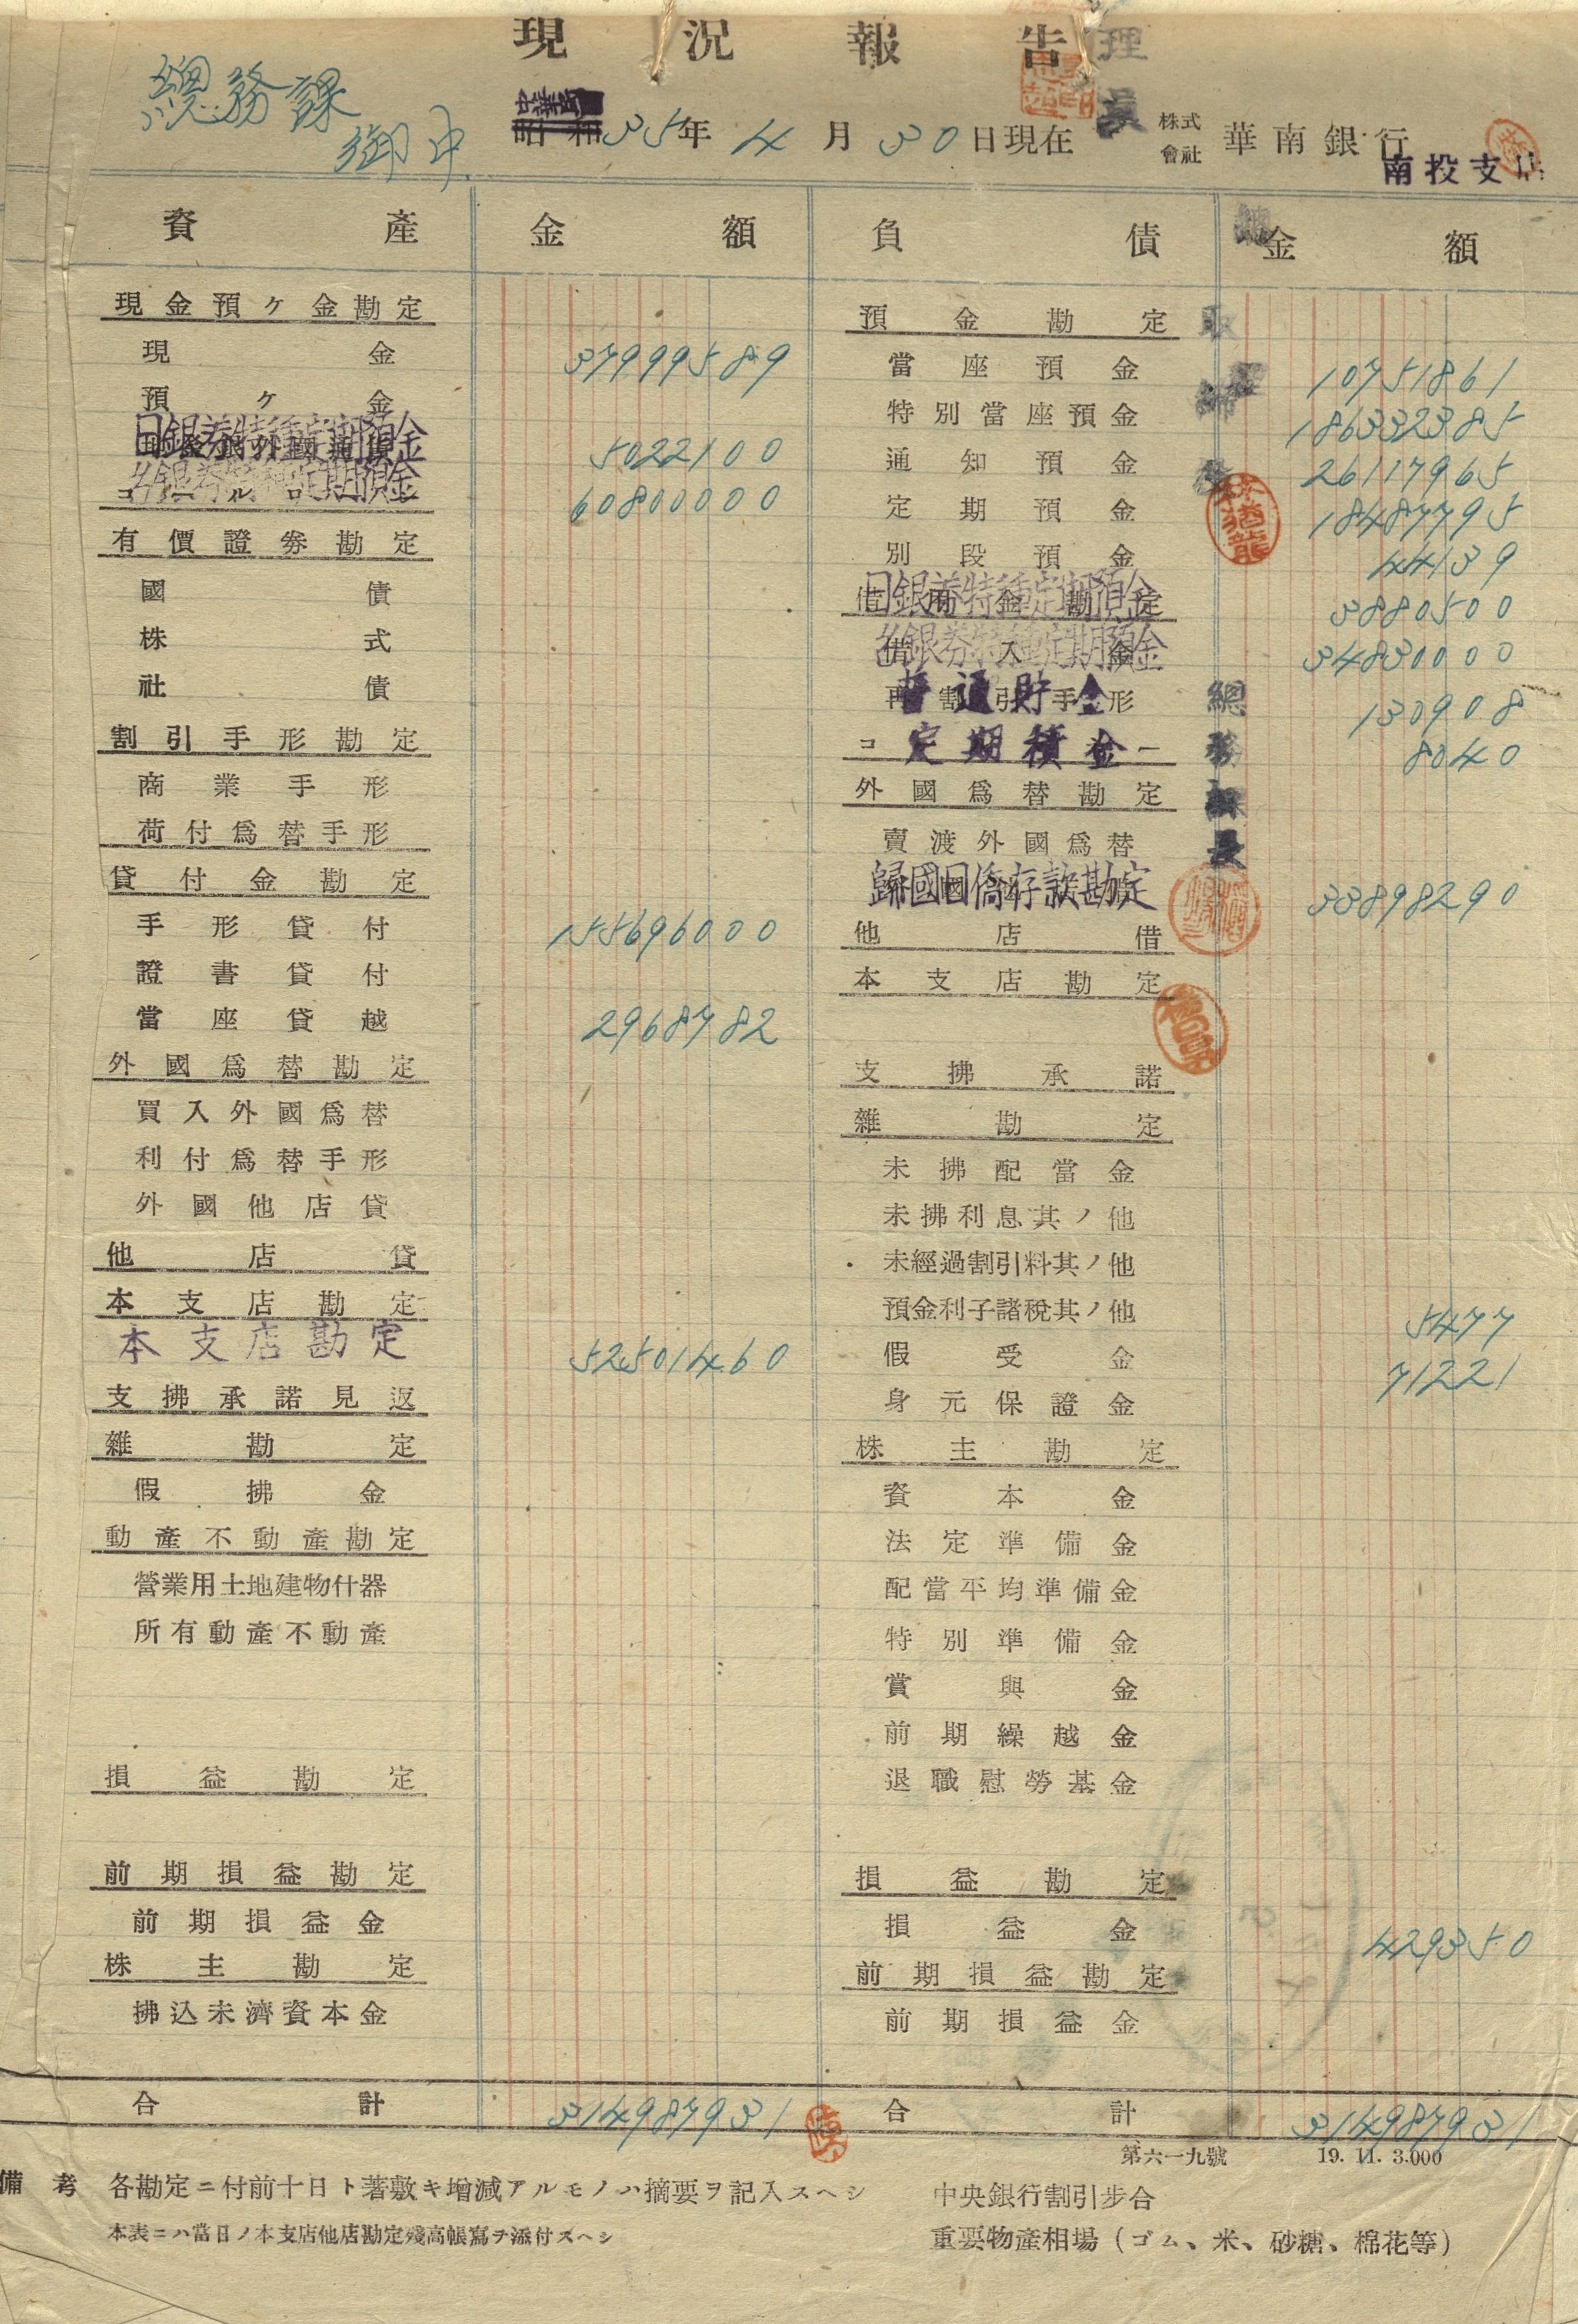 現況報告
總務課
御中
中華民國
昭和35年4月30日現在
株式會社 華南銀行
南投支店
資產 金額 負債 金額
現金預ケ金勘定
現金 37999589
預ケ金
日銀券特種定期預金 5022100
台銀券特種定期預金 60800000
有價證券勘定
國債
株式
社債
割引手形勘定
商業手形
荷付爲替手形
貸付金勘定
手形貸付 155696000
證書貸付
當座貸越 2968782
外國爲替勘定
買入外國爲替
利付爲替手形
外國他店貸
他店貸
本支店勘定
本支店勘定 52501460
支拂承諾見返
雜勘定
假拂金
動產不動產勘定
營業用土地建物什器
所有動產不動產
損益勘定
前期損益勘定
前期損益金
株主勘定
拂込未濟資本金
合計 314987931
預金勘定
當座預金 10751861
特別當座預金 186332385
通知預金 26117965
定期預金 18487795
別段預金 44139
日銀券特種定期預金 3880500
台銀券特種定期預金 34830000
普通貯金 130908
定期積金 8040
外國爲替勘定
賣渡外國爲替
歸國日僑存款勘定 33898290
他店借
本支店勘定
支拂承諾
雜勘定
未拂配當金
未拂利息其ノ他
未經過割引料其ノ他
預金利子諸稅其ノ他 5477
假受金 71221
身元保證金
株主勘定
資本金
法定準備金
配當平均準備金
特別準備金
賞與金
前期繰越金
退職慰勞基金
損益勘定
損益金 429350
前期損益勘定
前期損益金
合計 314987931
總務課長
林猶龍
第六一九號 19. 11. 3.000
備考 各勘定ニ付前十日ト著敷キ增減アルモノハ摘要ヲ記入スヘシ
本表ニハ當日ノ本支店他店勘定殘高帳寫ヲ添付スヘシ
中央銀行割引步合
重要物產相場(ゴム、米、砂糖、棉花等)